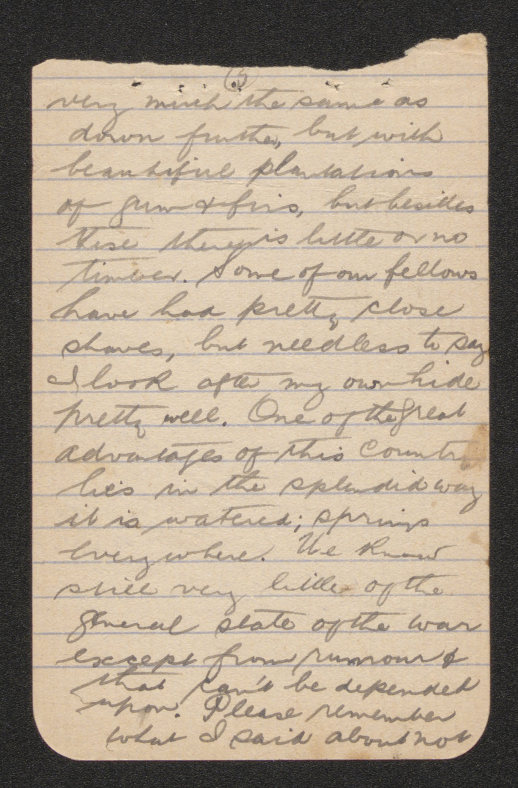 (5)
very much the same as
down further, but with
beautiful plantations
of gum & firs, but besides
these there is little or no
timber. Some of our fellows
have had pretty close
shaves, but needless to say
I look after my own hide
pretty well. One of the great
advantages of this country
lies in the splendid way
it is watered; springs
everywhere. We know
still very little of the
general state of the war
except from rumour &
that can't be depended
upon. Please remember
what I said about not